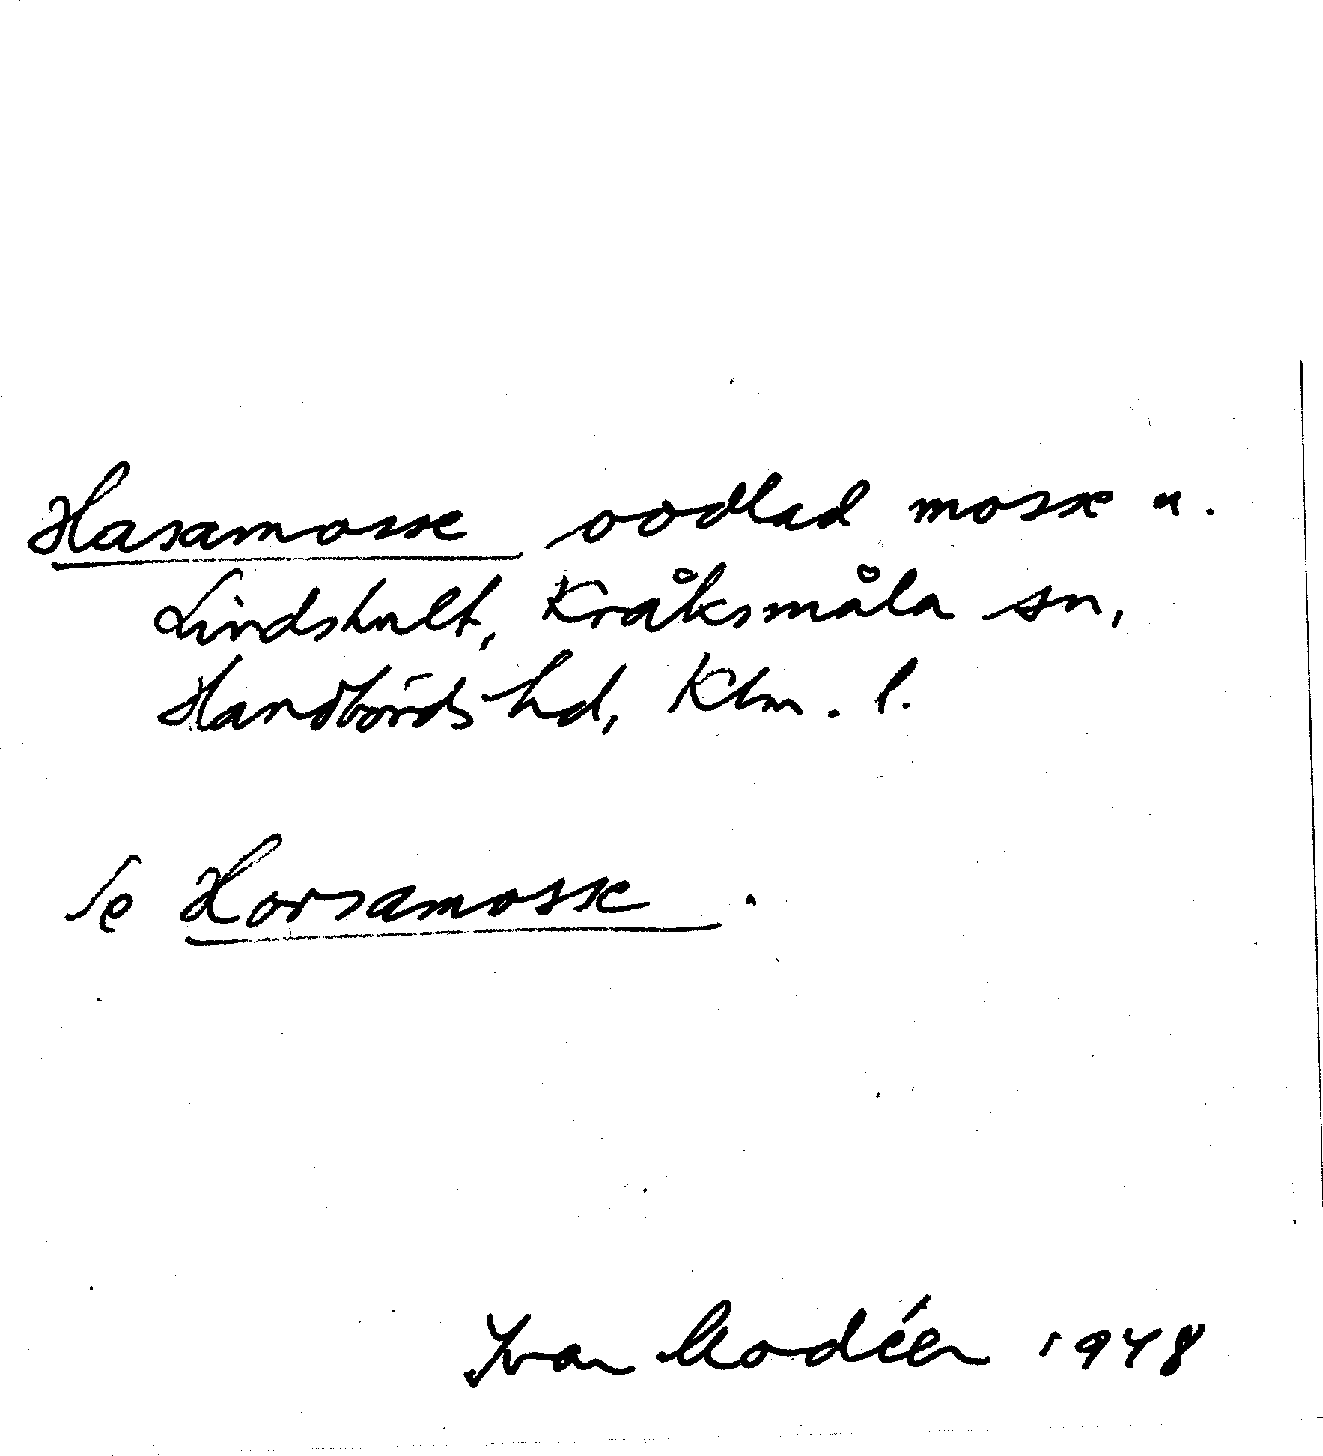 Hasamosse oodlad mosse u.
Lindshult, Kråksmåla sn,
Handbörds hd, Klm. l.
Se Horsamosse.
Ivar Modéer 1948